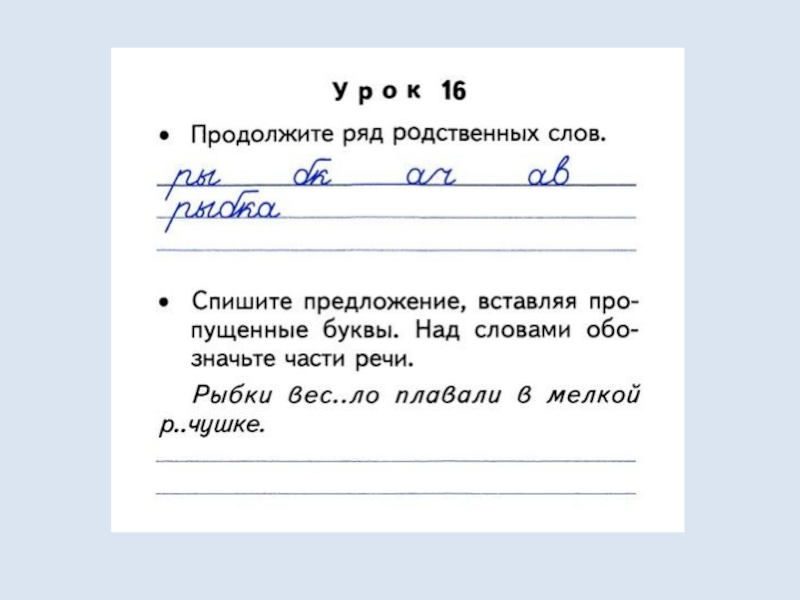 Урок 16
• Продолжите ряд родственных слов.
ры бк ач ав
рыбка
• Спишите предложение, вставляя про-
пущенные буквы. Над словами обо-
значьте части речи.
Рыбки вес..ло плавали в мелкой
р..чушке.